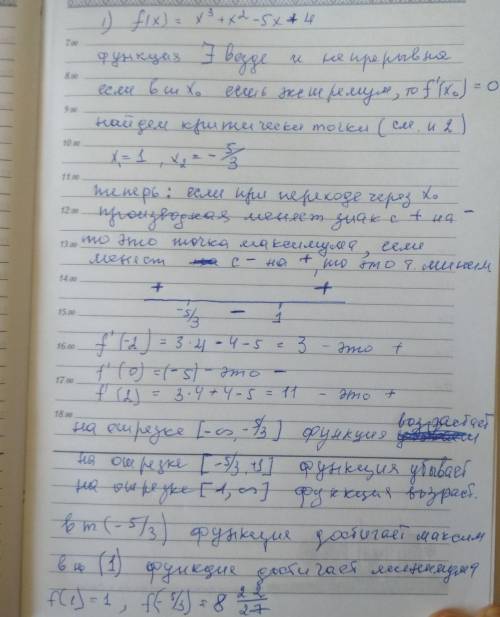 1) f(x) = x³+x²-5x+4
7.00
функция ∃ везде и непрерывна
8.00
если в т x₀ есть экстремум, то f'(x₀) = 0
9.00
найдем критически точки (см. н 2)
10.00
x₁=1, x₂=-5/3
11.00
теперь: если при переходе через x₀
12.00
производная меняет знак с + на -
13.00
то это точка максимума, если
меняет с - на +, то это т. миним
14.00
+ +
-5/3 - 1
15.00
16.00
f'(-2) = 3·4-4-5 = 3 - это +
f'(0) = (-5) - это -
17.00
f'(2) = 3·4+4-5 = 11 - это +
18.00
на отрезке [-∞, -5/3] функция возрастает
на отрезке [-5/3, 1] функция убывает
на отрезке [1, ∞] функция возраст.
в т (-5/3) функция достигает максим
в т (1) функция достигает минимума
f(1) = 1, f(-5/3) = 8 22/27